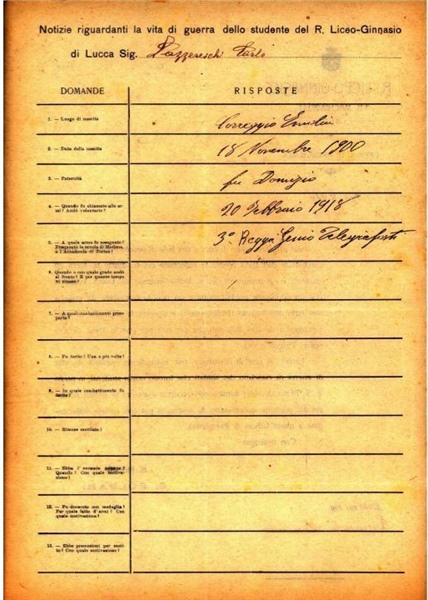 Notizie riguardanti la vita di guerra dello studente del R. Liceo-Ginnasio
di Lucca Sig. Pazzereschi Carlo
DOMANDE
RISPOSTE
1. — Luogo di nascita
Correggio Emilia
2. — Data della nascita
18 Novembre 1900
3. — Paternità
fu Domizio
4. — Quando fu chiamato alle armi? Andò volontario?
20 Febbraio 1918
5. — A quale arma fu assegnato?
Frequentò la scuola di Modena
o l'Accademia di Torino?
3° Regg. Genio Telegrafisti
6. Quando e con quale grado andò
al fronte? E per quanto tempo
vi rimase?
7. — A quali combattimenti prese
parte?
8. — Fu ferito? Una o più volte?
9. — In quale combattimento fu
ferito?
10. — Rimase mutilato?
11. — Ebbe
Quando? Con quale motivazione?
12. — Fu decorato con medaglia?
Per quale fatto d'armi? Con
quale motivazione?
13. — Ebbe promozioni per merito? Con quale motivazione?